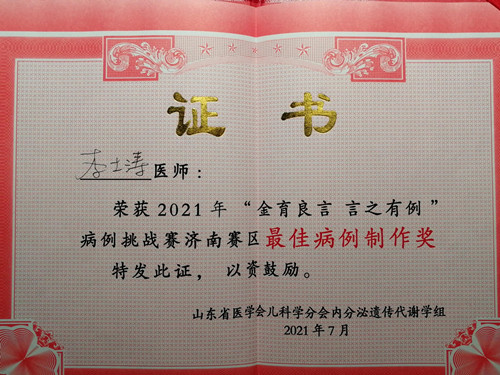 证书
李士涛医师：
荣获2021年“金育良言 言之有例”
病例挑战赛济南赛区最佳病例制作奖
特发此证，以资鼓励。
山东省医学会儿科学分会内分泌遗传代谢学组
2021年7月